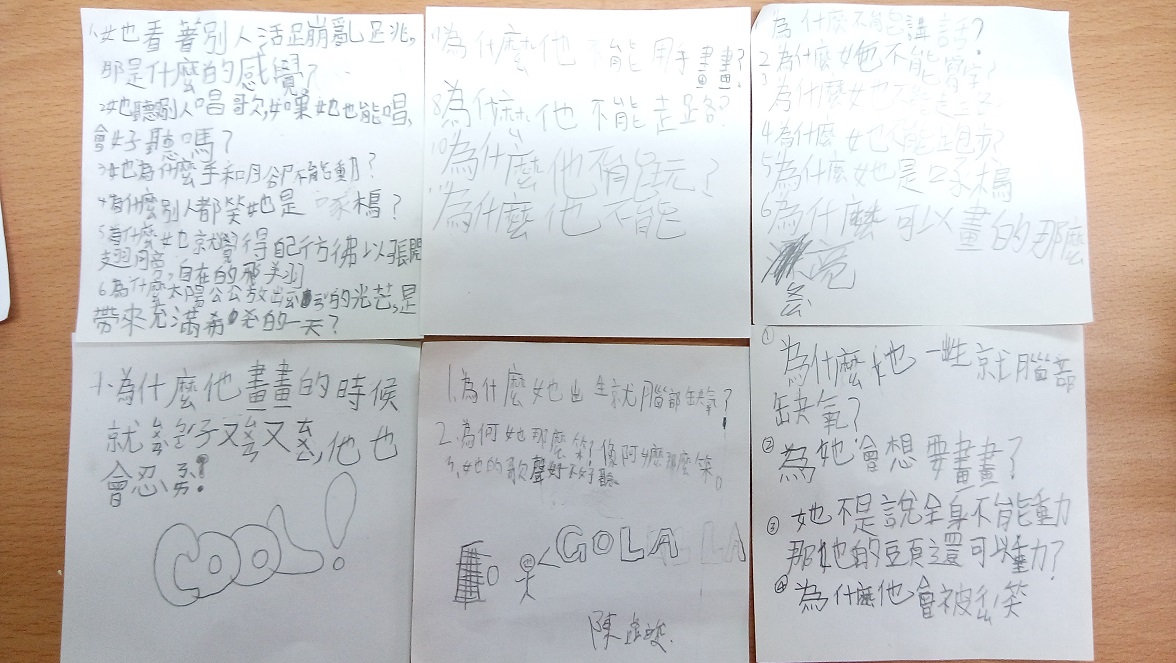 1.她看著別人活足崩亂足兆,
那是什麼的感覺?
2.她聽別人唱歌,如果她也能唱,
會好聽嗎?
3.她為什麼手和腳不能動?
4.為什麼別人都笑她是啄木鳥?
5.為什麼她就覺得自己彷彿以張開
翅膀,自在的飛
6.為什麼太陽公公放出的光芒,是
帶來充滿希的一天?
為什麼他不能用手畫畫?
8.為什麼他不能走路?
10.為什麼他不能玩?
為什麼他不能
為什麼不能講話?
2.為什麼她不能寫字?
3.為什麼她不能走路?
4.為什麼她不能跑步?
5.為什麼她是啄木鳥
6.為什麼可以畫的那麼
亮
ㄠ
1.為什麼他畫畫的時候
就脖子又又,他也
會忍ㄋㄞˋ!
COOL!
1.為什麼她出生就腦部缺氧?
2.為何她那麼笨?像阿嬤那麼笨。
3.她的歌聲好不好聽
GOLA
陳
①為什麼她一生就腦部
缺氧?
②為她會想要畫畫?
③她不是說全身不能動
那她的頭還可以動?
④為什麼他會被ㄔㄠˊ笑